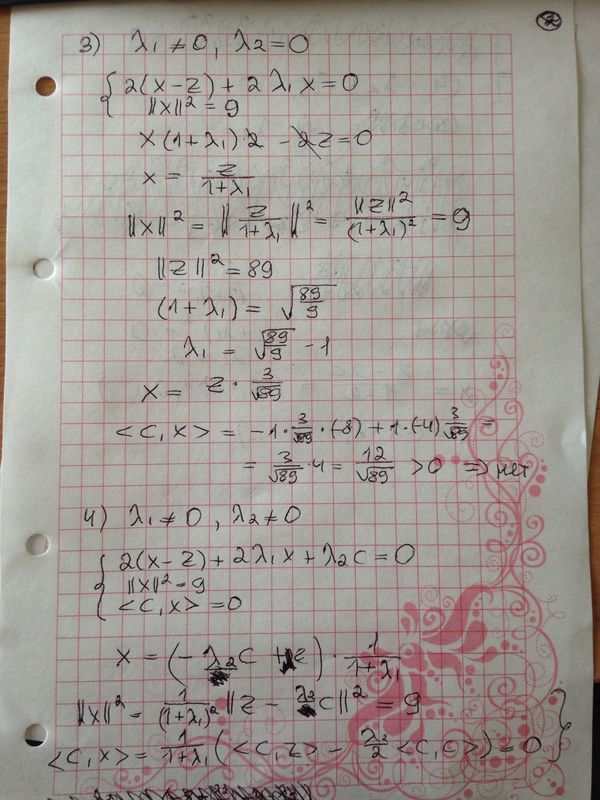 2
3) λ₁ ≠ 0, λ₂ = 0
{ 2(x-z) + 2λ₁x = 0
||x||² = 9
x(1+λ₁)2 - 2z = 0
x = z/(1+λ₁)
||x||² = ||z/(1+λ₁)||² = ||z||²/(1+λ₁)² = 9
||z||² = 89
(1+λ₁) = √(89/9)
λ₁ = √(89/9) - 1
x = z · 3/√89
<c,x> = -1 · 3/√89 · (-8) + 1·(-4) 3/√89 =
= 3/√89 · 4 = 12/√89 > 0 ⇒ нет
4) λ₁ ≠ 0, λ₂ ≠ 0
{ 2(x-z) + 2λ₁x + λ₂c = 0
||x||² = 9
<c,x> = 0
x = (-λ₂c/2 + z) · 1/(1+λ₁)
||x||² = 1/(1+λ₁)² ||z - λ₂/2 c||² = 9
<c,x> = 1/(1+λ₁) (<c,z> - λ₂/2 <c,c>) = 0 }